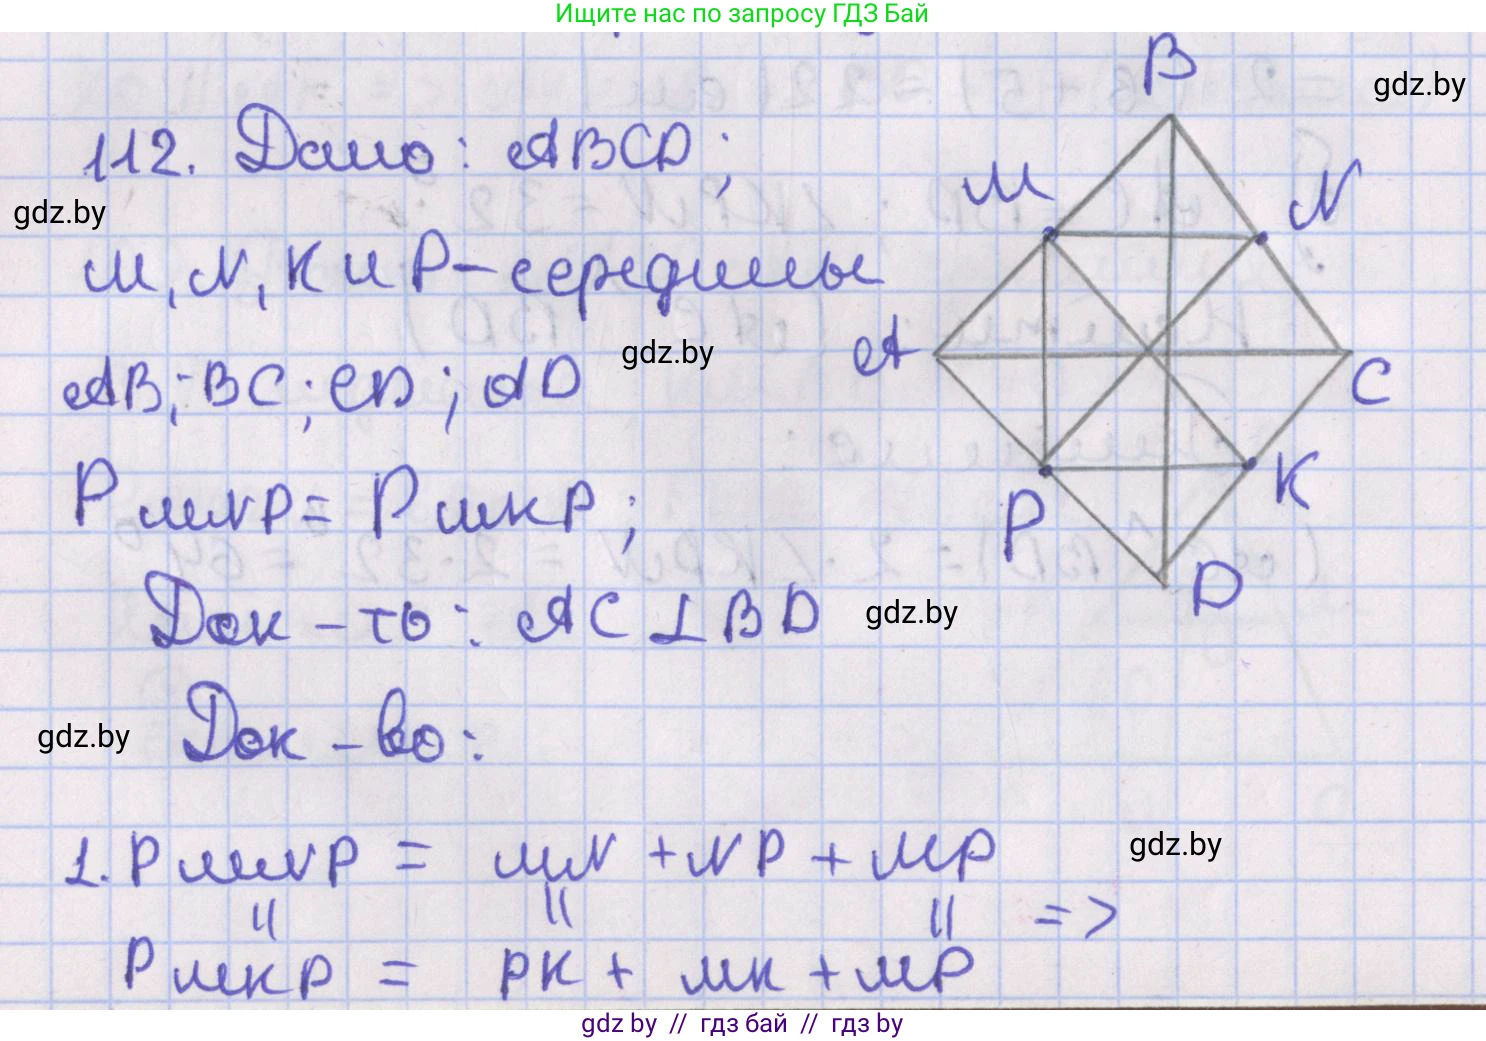 Ищите нас по запросу ГДЗ Бай
B
gdz.by
112. Дано: ABCD;
M
N
gdz.by
M, N, K и P - середины
A
gdz.by
AB; BC; CD; AD
C
P MNP = P MKP;
K
P
D
Док-ть: AC ⊥ BD
gdz.by
gdz.by
Док-во:
1. P MNP = MN + NP + MP
gdz.by
|| || || =>
P MKP = PK + MK + MP
gdz by // гдз бай // гдз by